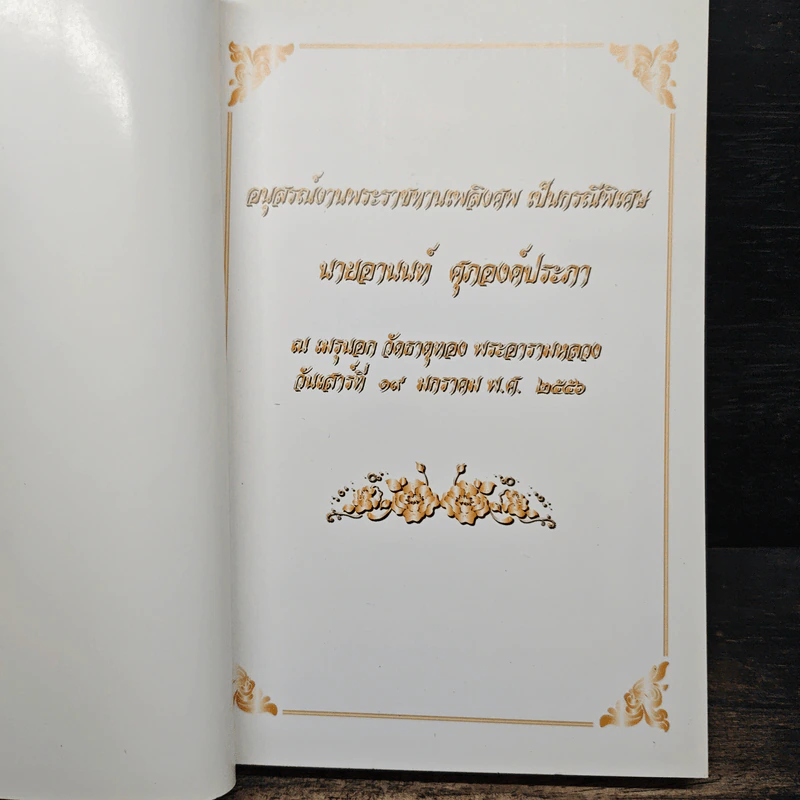 อนุสรณ์งานพระราชทานเพลิงศพ เป็นกรณีพิเศษ
นายอานนท์ ศุภองค์ประภา
ณ เมรุนอก วัดธาตุทอง พระอารามหลวง
วันเสาร์ที่ ๑๙ มกราคม พ.ศ. ๒๕๕๖